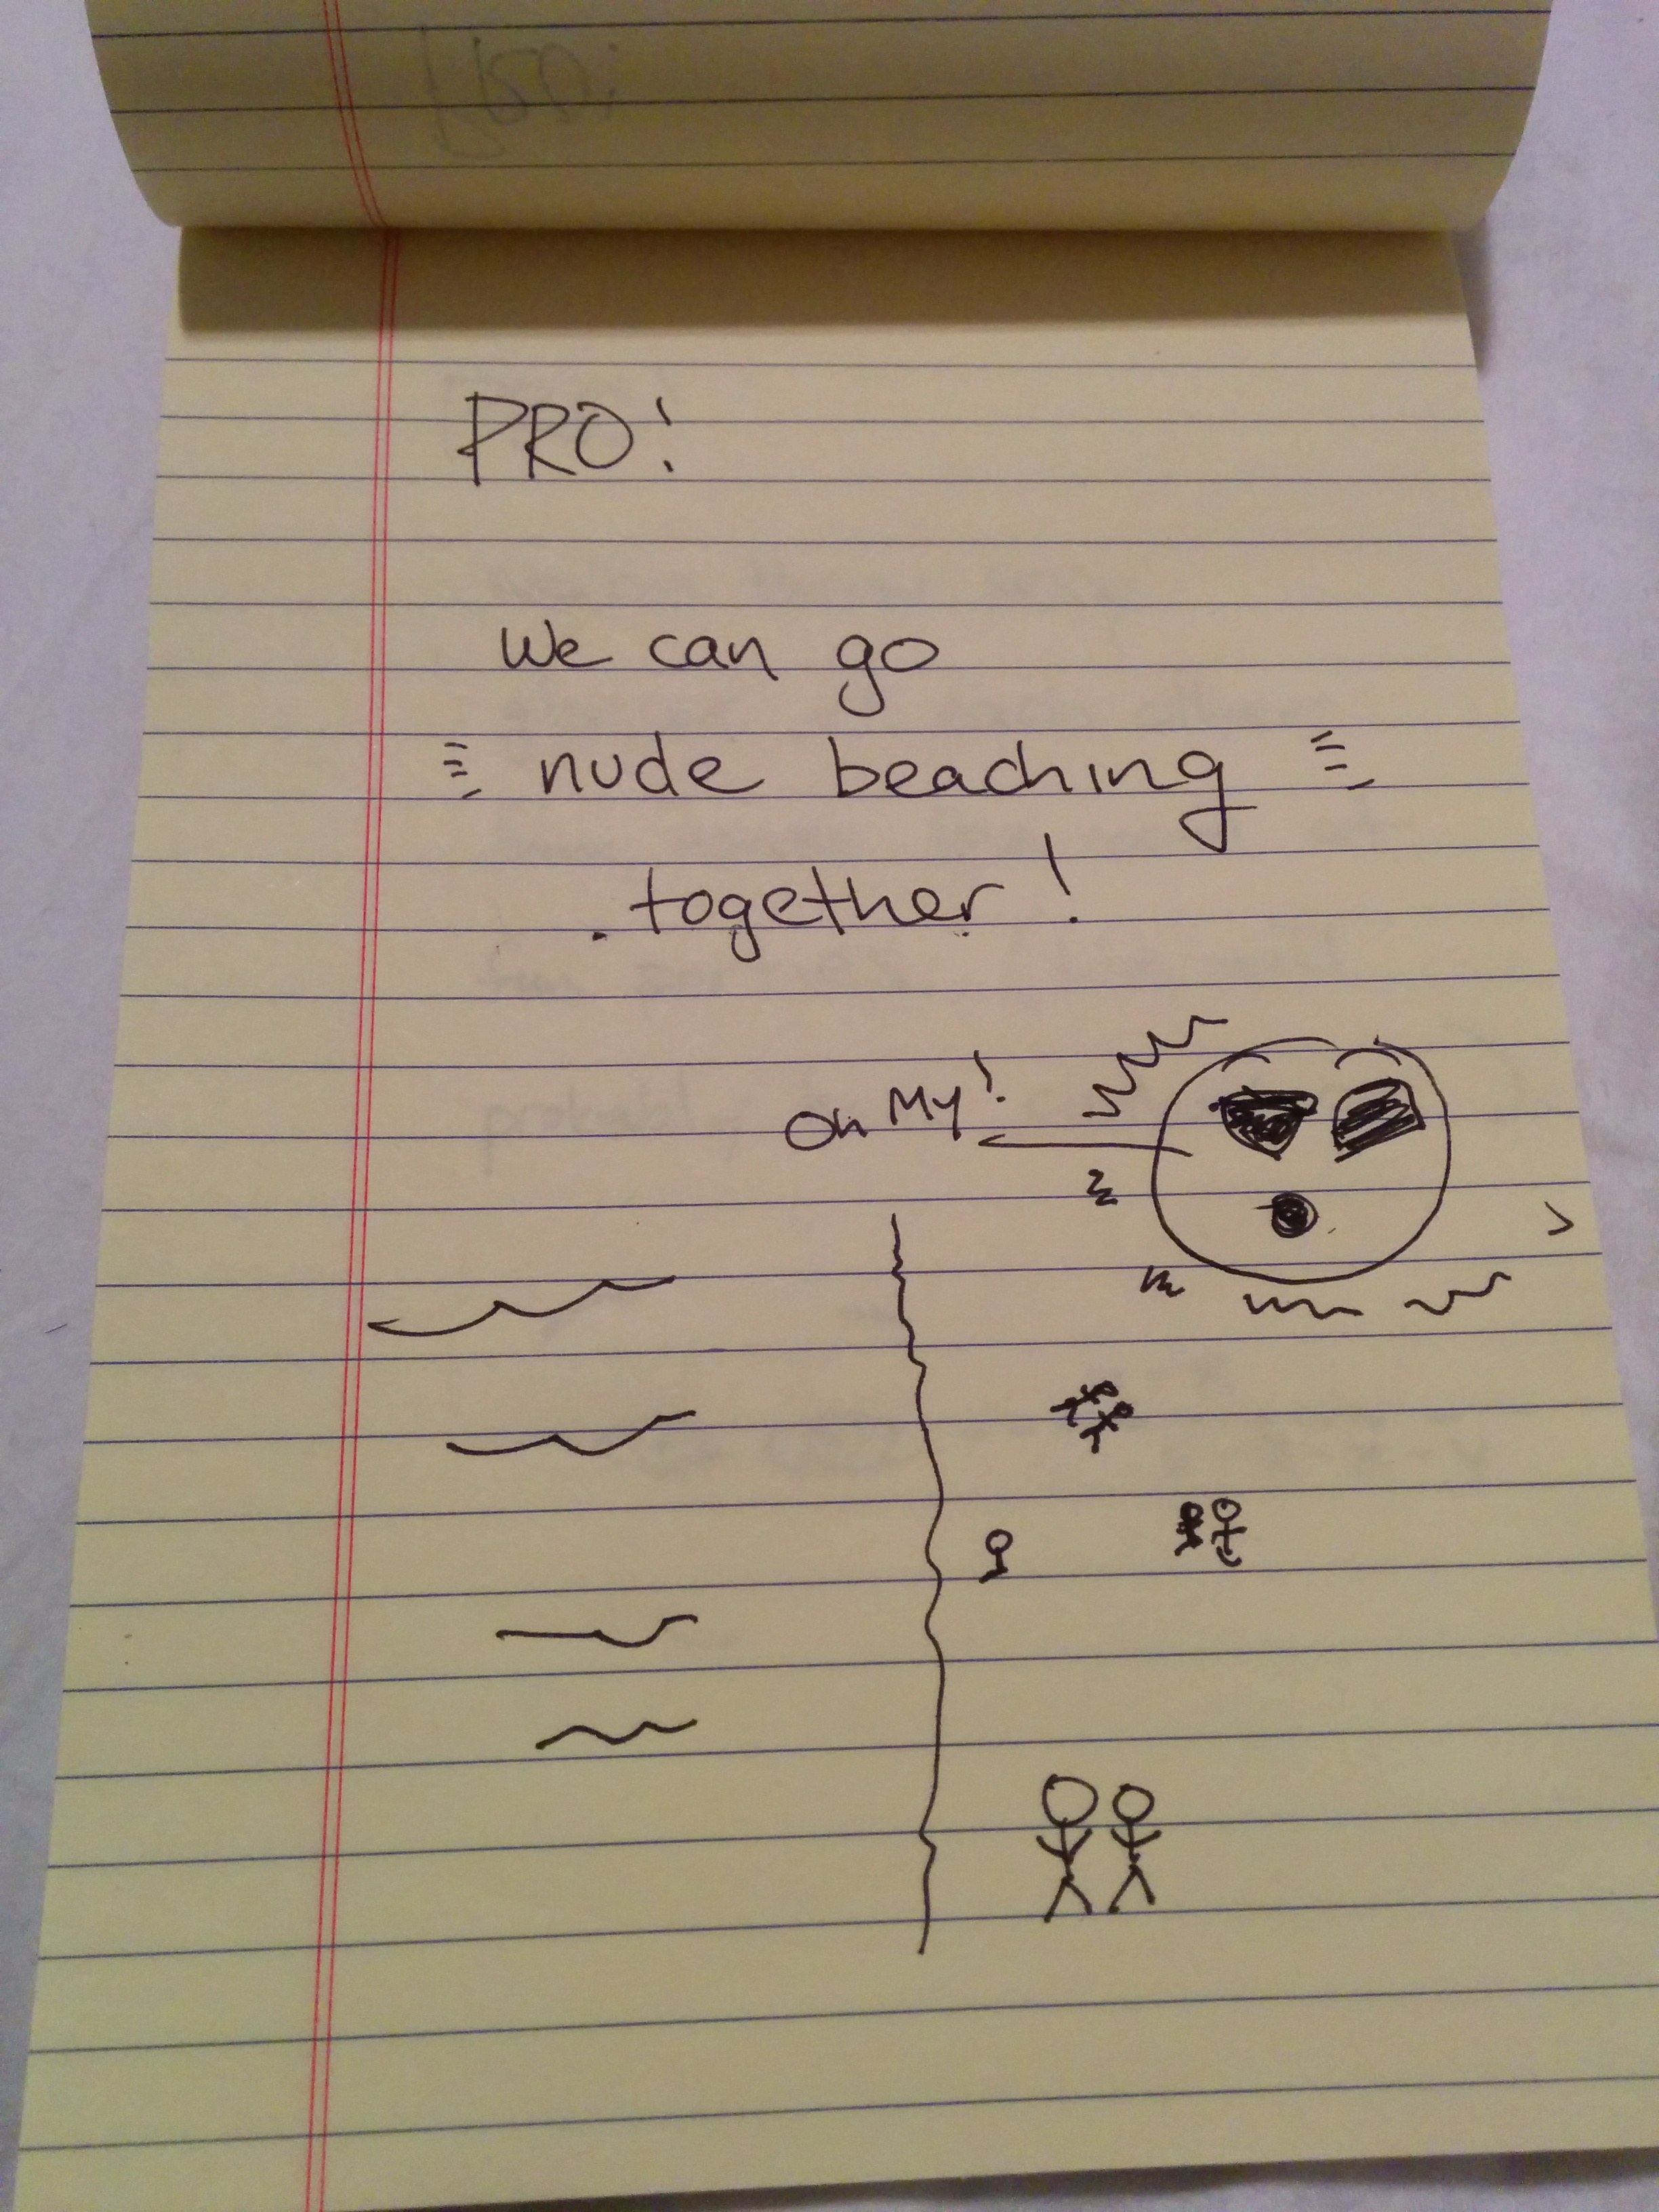 PRO!
We can go
nude beaching
together!
Oh My!